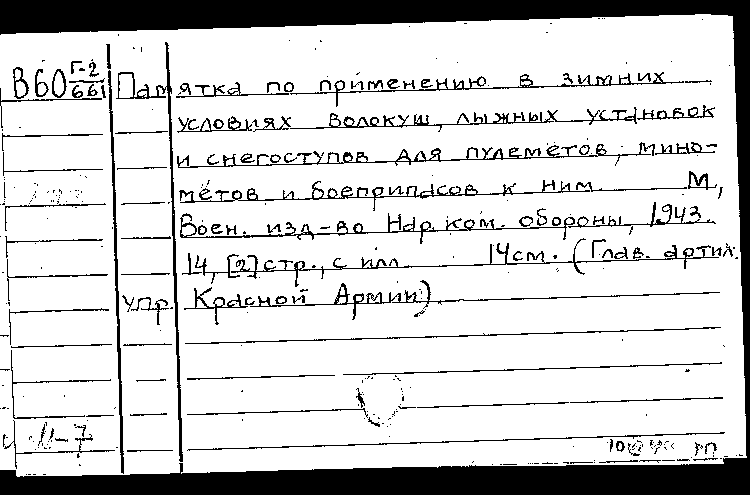 В60 Г-2/661 Памятка по применению в зимних
условиях волокуш, лыжных установок
и снегоступов для пулеметов, мино-
мётов и боеприпасов к ним. М,
Воен. изд-во Нар. ком. обороны, 1943.
14, [2] стр., с илл. 14 см. (Глав. артил.
упр. Красной Армии).
М-7